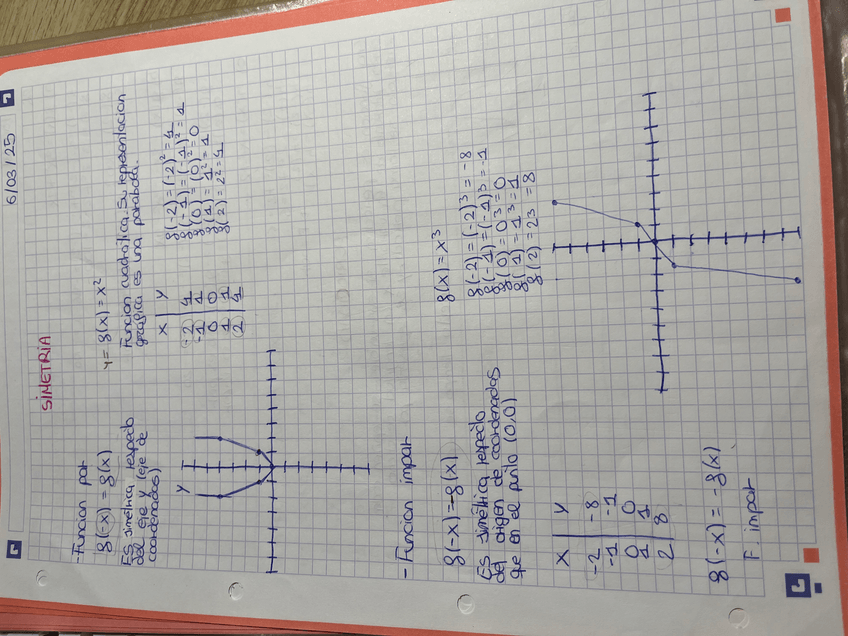 6/03/25
SIMETRÍA
- Funcion par
f(-x) = f(x)
ES simétrica respecto
del eje y (eje de
coordenadas)
y
y = f(x) = x²
Funcion cuadratica. Su representacion
grafica es una parabola.
x y
-2 4
-1 1
0 0
1 1
2 4
f(-2) = (-2)² = 4
f(-1) = (-1)² = 1
f(0) = (0)² = 0
f(1) = 1² = 1
f(2) = 2² = 4
- Funcion impar
f(-x) = -f(x)
ES simétrica respecto
del origen de coordenadas
que en el punto (0,0)
f(x) = x³
f(-2) = (-2)³ = -8
f(-1) = (-1)³ = -1
f(0) = 0³ = 0
f(1) = 1³ = 1
f(2) = 23 = 8
x y
-2 -8
-1 -1
0 0
1 1
2 8
f(-x) = -f(x)
F impar